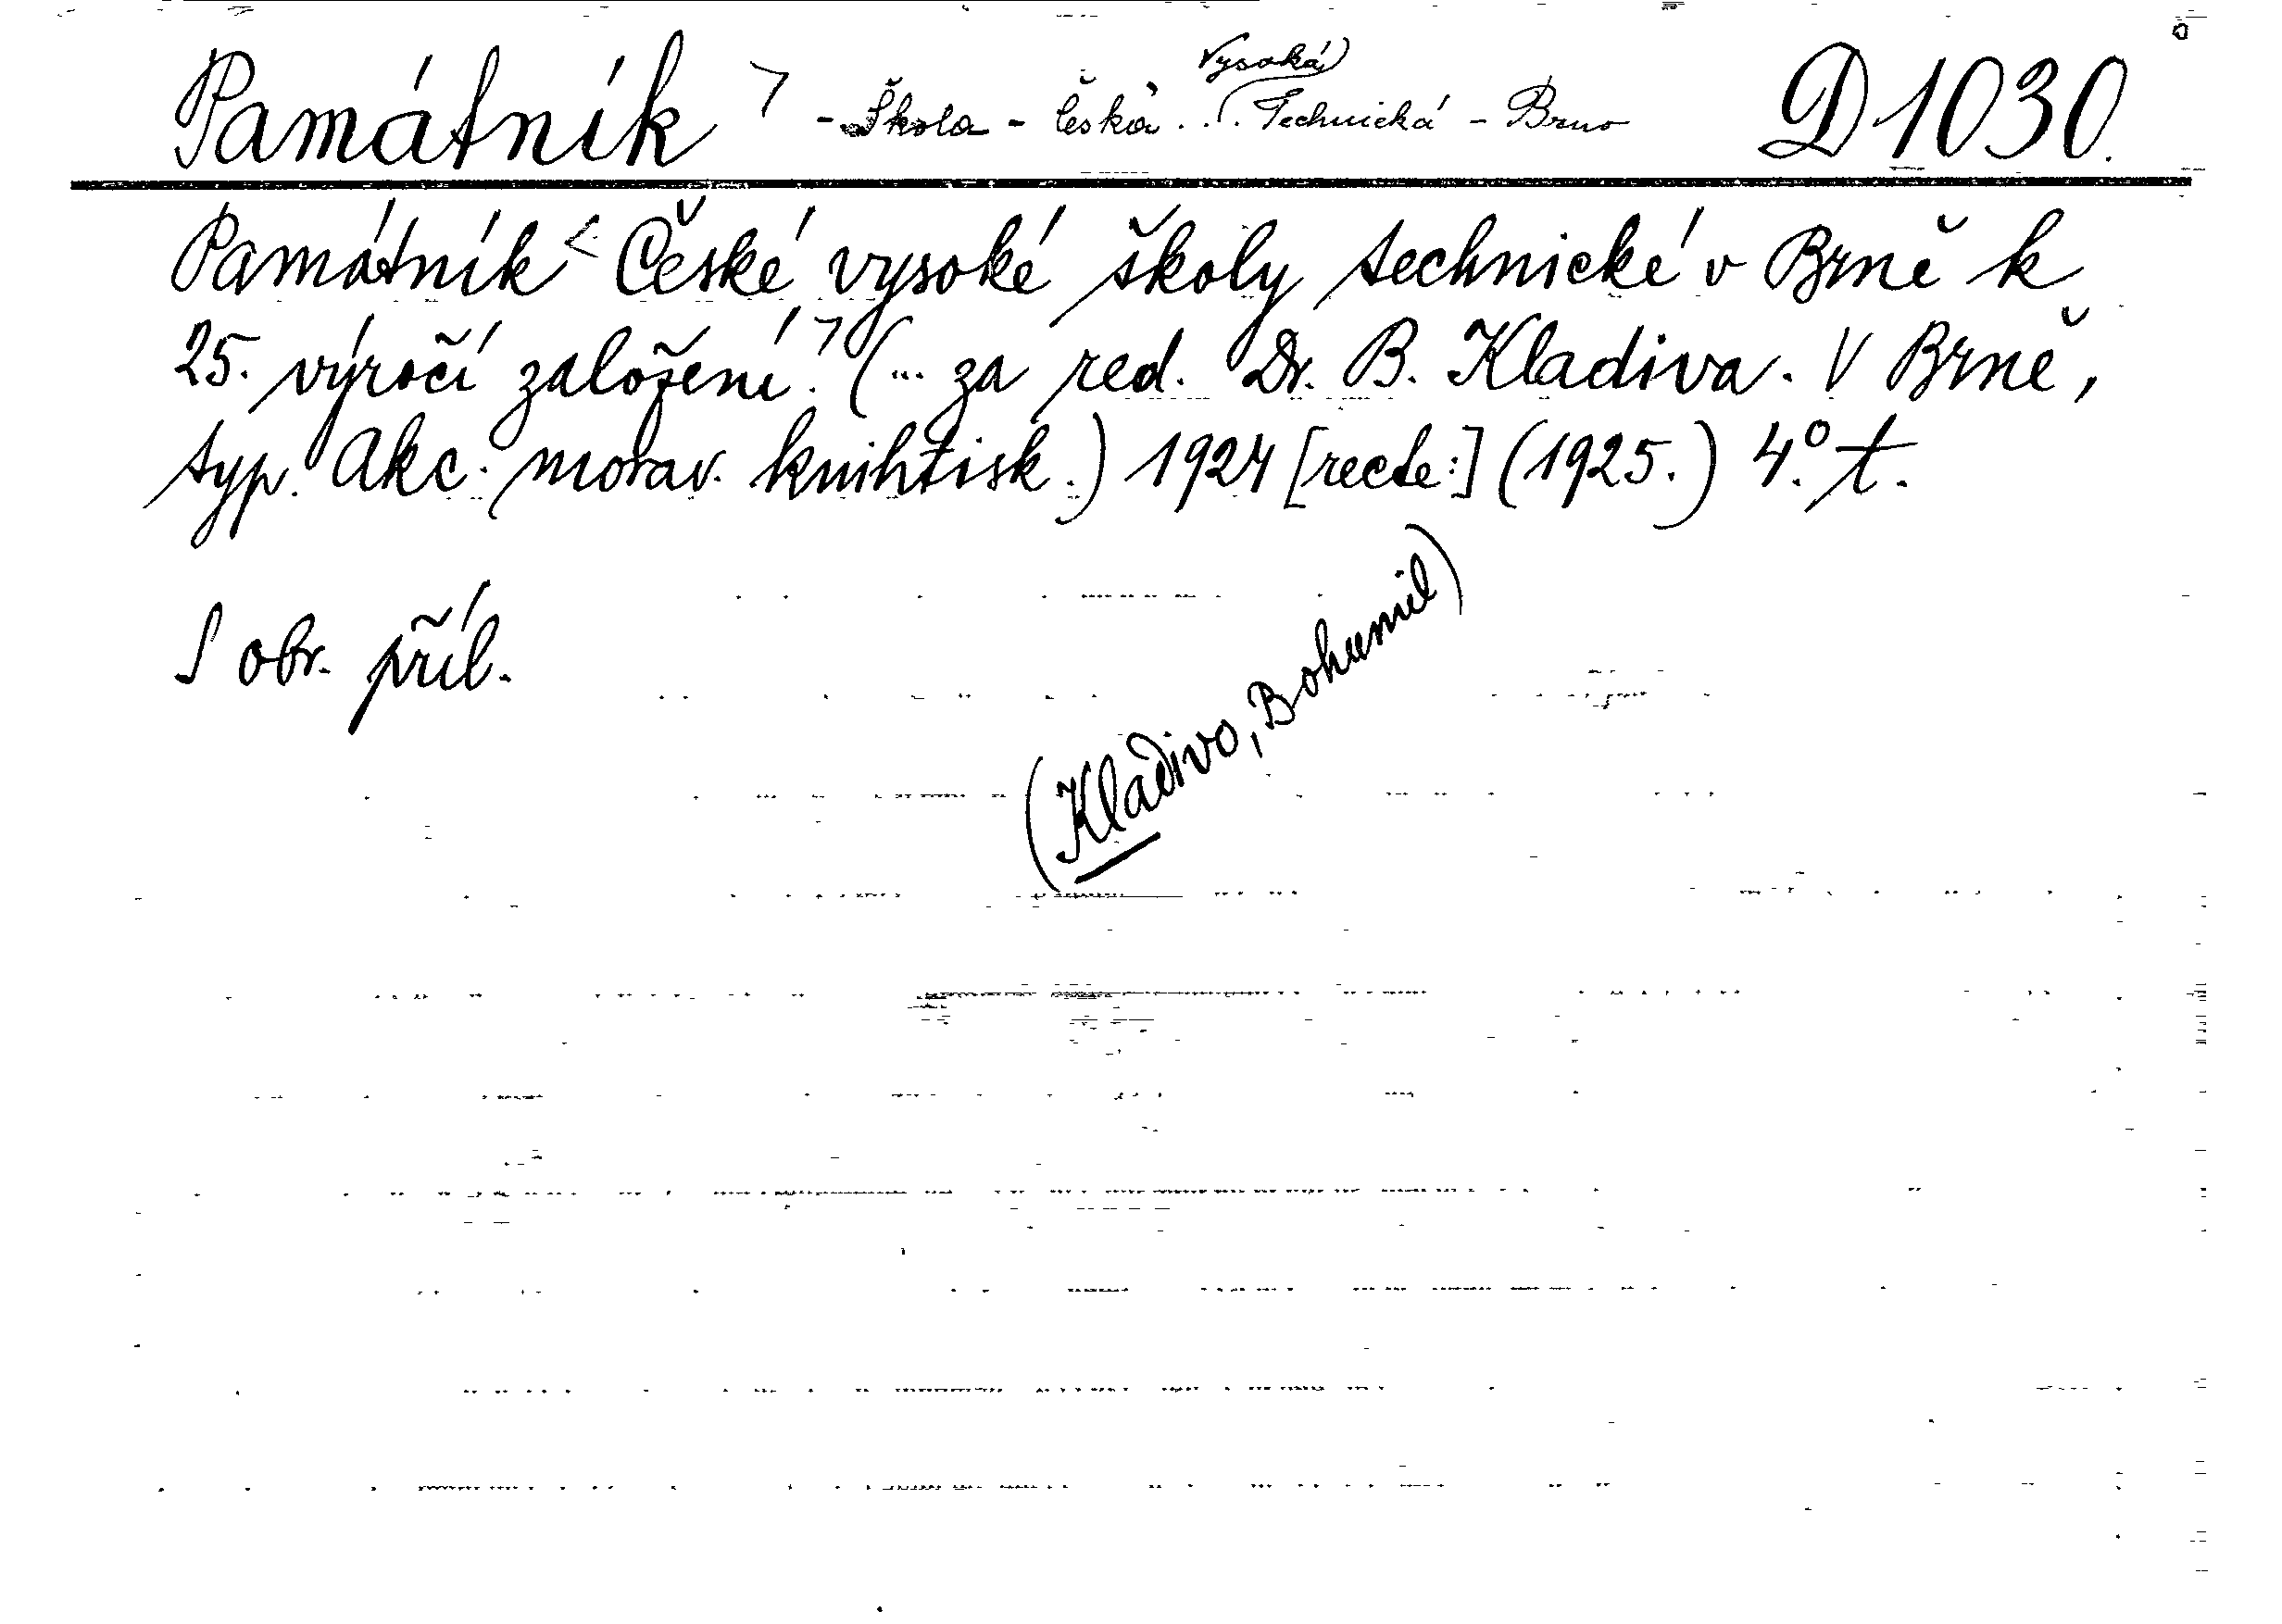 Vysoká
Památník ¬ - Škola - česká . . . Technická - Brno D 1030.
Památník < České vysoké školy technické v Brně k
25. výročí založení. ¬ (... za red. Dr. B. Kladiva. V Brně,
typ. Akc. morav. knihtisk.) 1924 [recte:] (1925.) 4.º t.
S obr. příl.
(Kladivo, Bohumil)